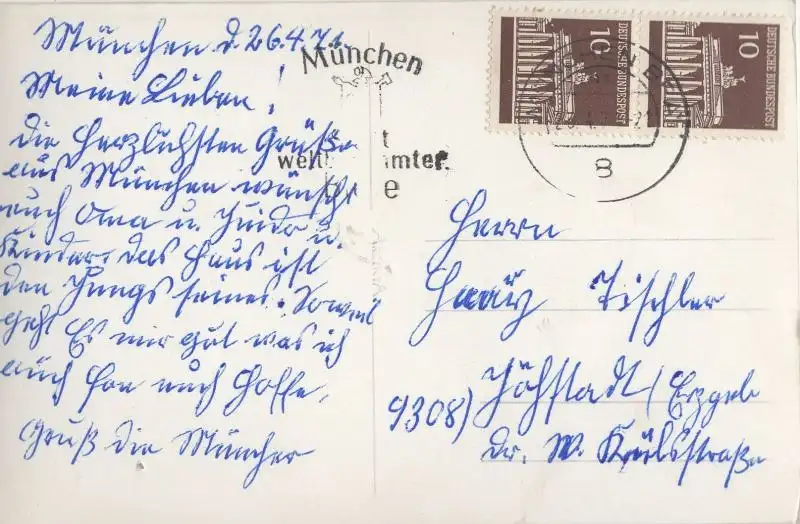 München d. 26.4.71.
Meine Lieben!
Die Herzlichsten Grüße
aus München wünscht
euch Oma u. u.
Kinder. das Haus ist
den Jungs seines. Soweit
geht Es mir gut was ich
auch fon euch Hoffe.
Gruß die Müncher
München
t
welt mter
e
10
DEUTSCHE BUNDESPOST
10
DEUTSCHE BUNDESPOST
8
Herrn
Tischler
9308) Jöhstadt / Erzgeb
dr. W. Külzstraße